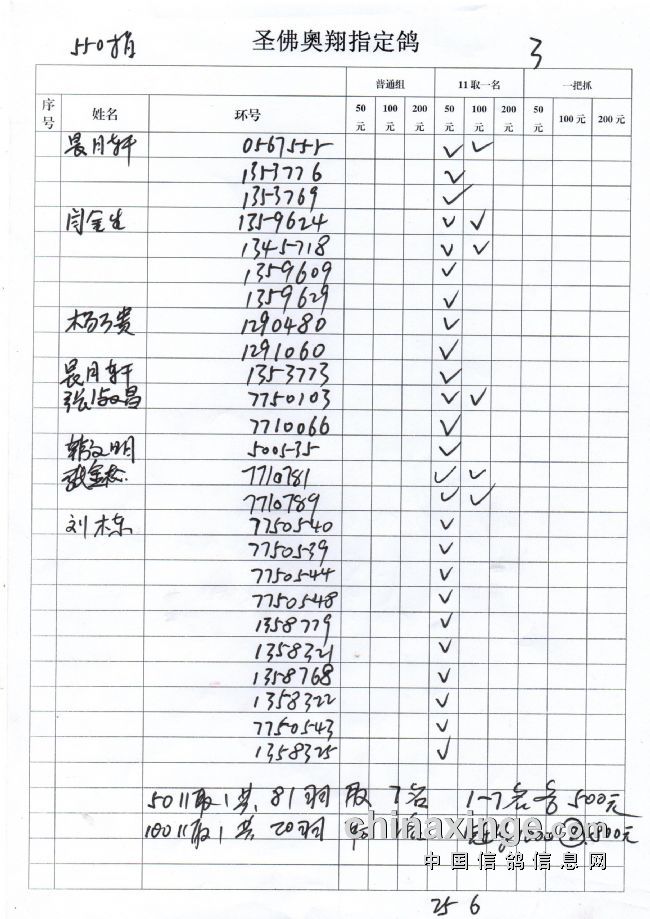 550指 圣佛奥翔指定鸽 3
普通组 11取一名 一把抓
序号 姓名 环号 50元 100元 200元 50元 100元 200元 50元 100元 200元
晨月轩 0567555 ✓ ✓
1353776 ✓
1353769 ✓
闫金生 1359624 ✓ ✓
1345718 ✓ ✓
1359609 ✓
1359629 ✓
1290480 ✓
1291060 ✓
晨月轩 1353773 ✓
7750103 ✓ ✓
7710066 ✓
韩文明 500535 ✓
7710781 ✓ ✓
7710789 ✓ ✓
刘栋 7750540 ✓
7750539 ✓
7750544 ✓
7750548 ✓
1358779 ✓
1358321 ✓
1358768 ✓
1358322 ✓
7750543 ✓
1358325 ✓
50 11取1共 81羽 取 7名 1-7名各500元
100 11取1共 20羽
chinaxinge.com
中国信鸽信息网
25 6